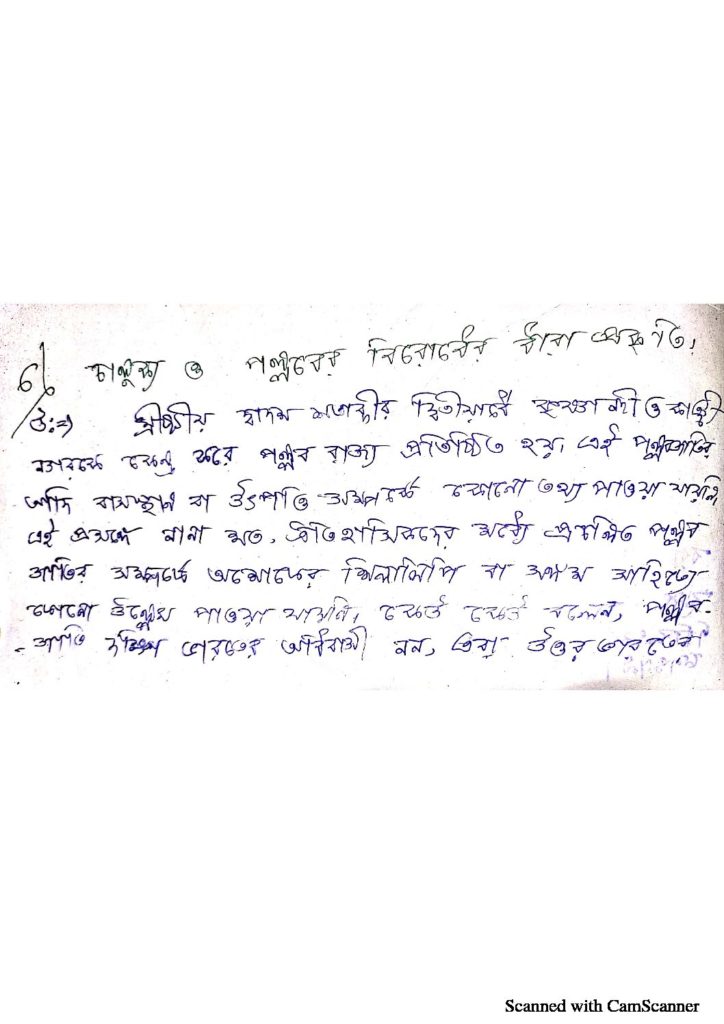 ৫। চালুক্য ও পল্লবের বিরোধের ধারা প্রকৃতি।
উঃ⇒ খ্রীষ্টীয় দ্বাদশ শতাব্দীর দ্বিতীয়ার্ধে কৃষ্ণা নদী ও কাঞ্চী
নগরকে কেন্দ্র করে পল্লব রাজ্য প্রতিষ্ঠিত হয়। এই পল্লবজাতির
আদি বাসস্থান বা উৎপত্তি সম্পর্কে কোনো তথ্য পাওয়া যায়নি
এই প্রসঙ্গে নানা মত, ঐতিহাসিকদের মধ্যে প্রচলিত পল্লব
জাতির সম্পর্কে অশোকের শিলালিপি বা সঙ্গম সাহিত্যে
কোনো উল্লেখ পাওয়া যায়নি, কেউ কেউ বলেন, পল্লব-
জাতি দক্ষিণ ভারতের আধিবাসী নন, এরা উত্তর ভারতের
Scanned with CamScanner